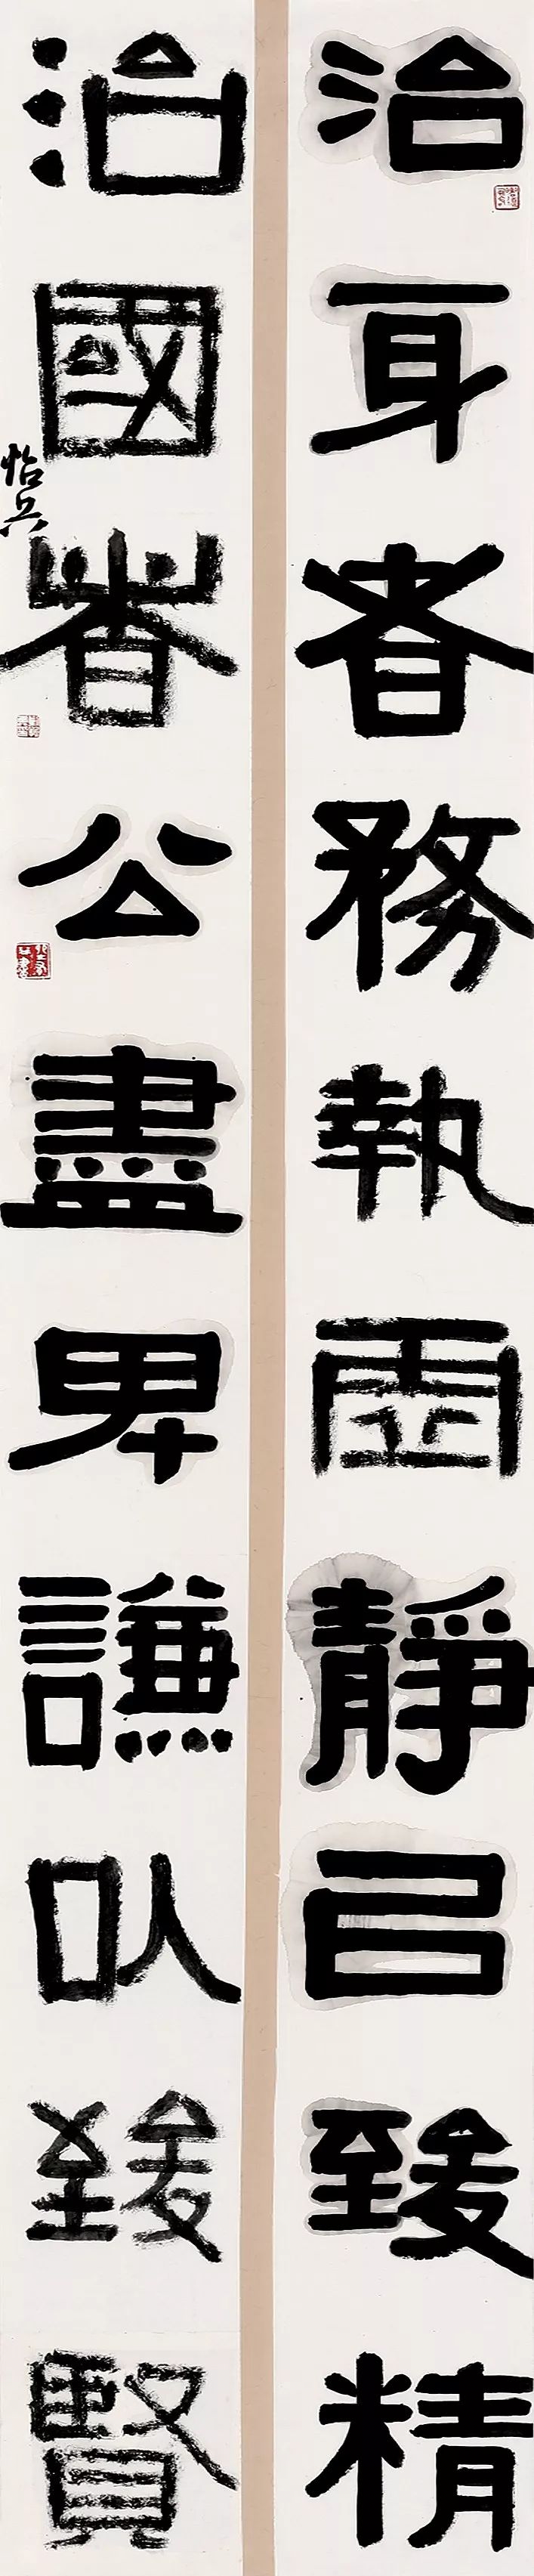 治身者務執虛靜以致精
治國者公盡卑謙以致賢
怡兵